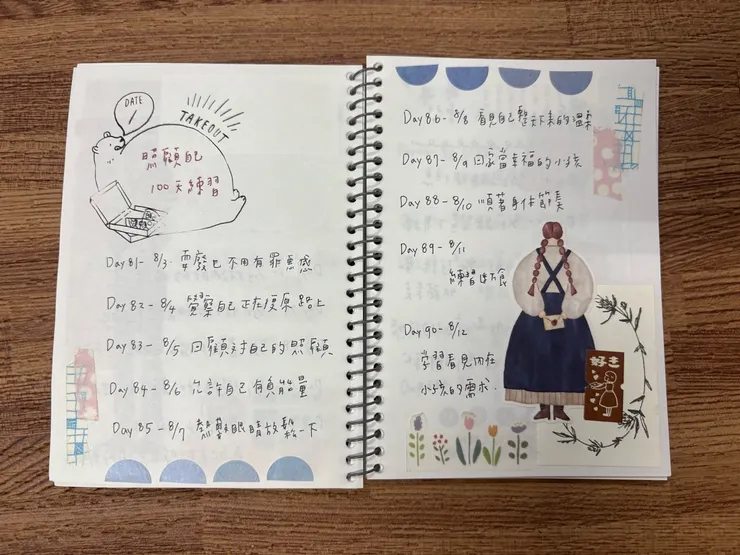 DATE
/
TAKEOUT
照顧自己
100天練習
Day 81 - 8/3 耍廢也不用有罪惡感
Day 82 - 8/4 覺察自己正在復原路上
Day 83 - 8/5 回顧對自己的照顧
Day 84 - 8/6 允許自己有負能量
Day 85 - 8/7 熱敷眼睛放鬆一下
Day 86 - 8/8 看見自己整天下來的溫柔
Day 87 - 8/9 回家當幸福的小孩
Day 88 - 8/10 順著身体節奏
Day 89 - 8/11
練習斷食
Day 90 - 8/12
學習看見內在
小孩的需求.
好き